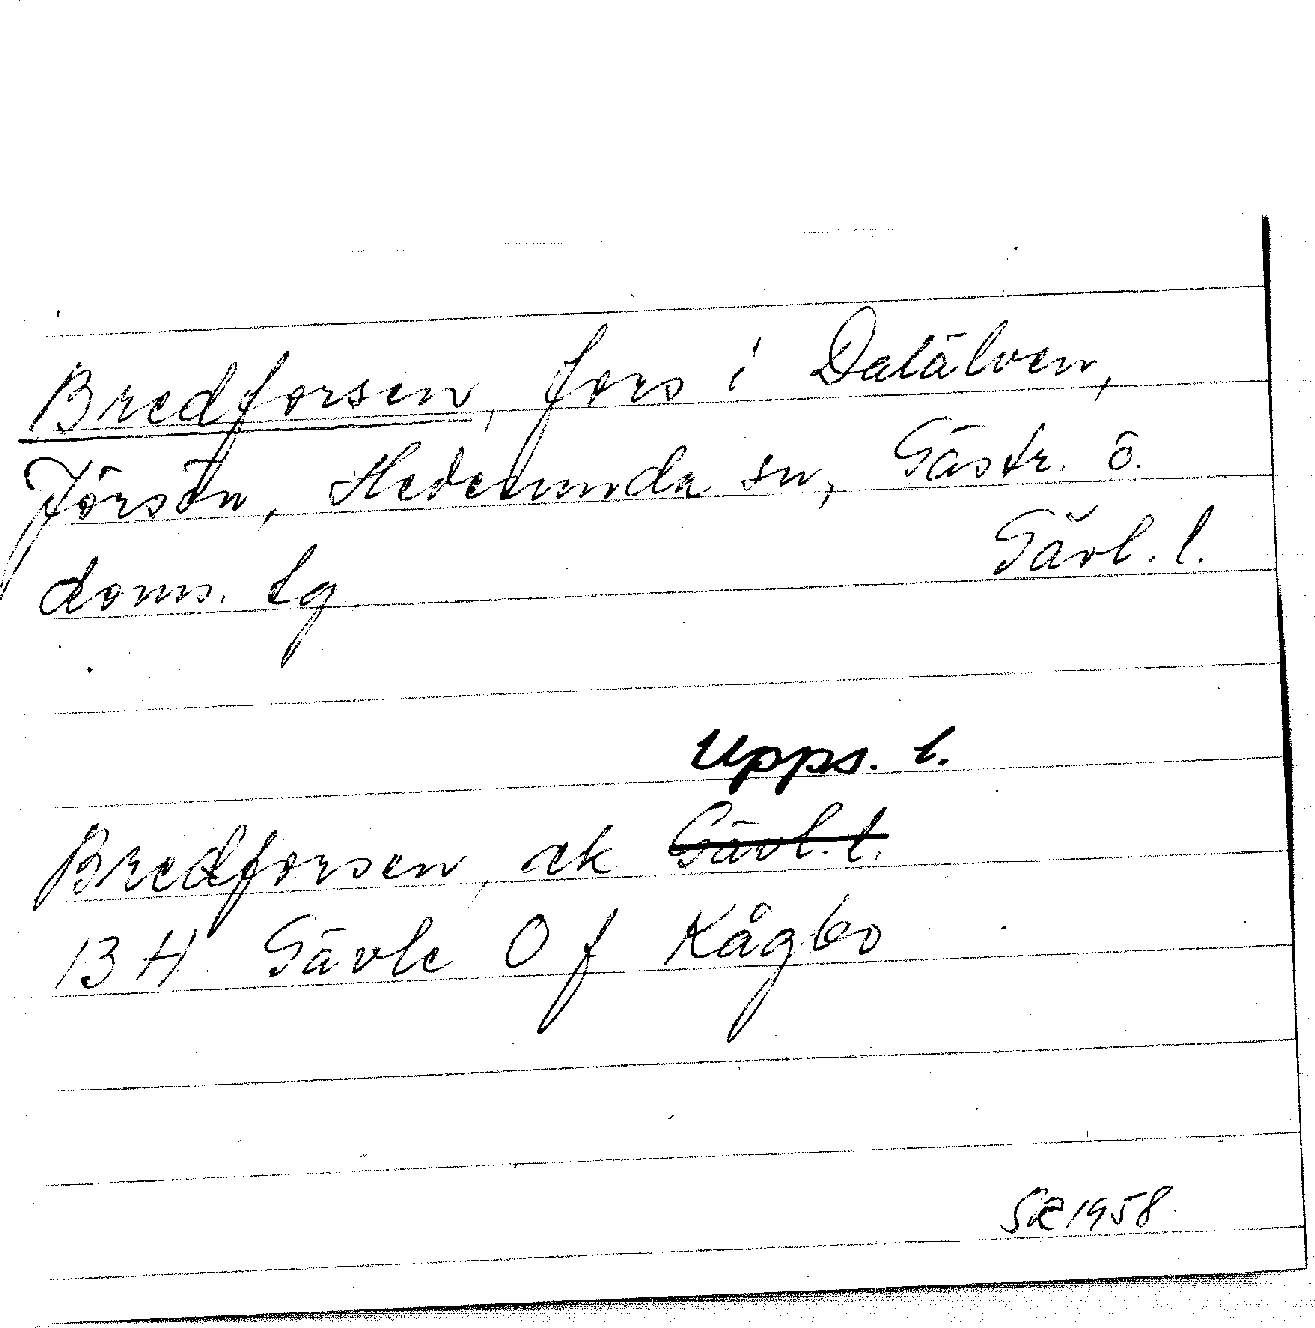 Bredforsen, fors i Dalälven,
Jörsön, Hedesunda sn, Gästr. ö.
doms. lg Gävl. l.
Upps. l.
Bredforsen, ek Gävl. l.
13 H Gävle 0 f Kågbo
SK 1958